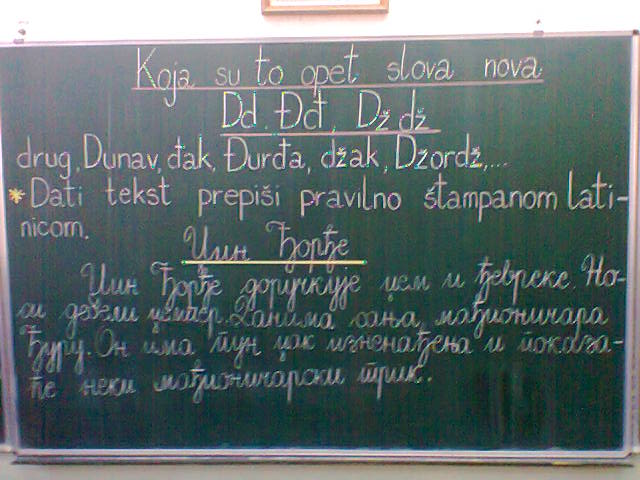 Koja su to opet slova nova
Dd, Đđ, Dž dž
drug, Dunav, đak, Đurđa, džak, Džordž,...
* Dati tekst prepiši pravilno štampanom lati-
nicom.
Џин Ђорђе
Џин Ђорђе доручкује џем и ђевреке. Но-
си дебели џемпер. Данима сања мађионичара
Ђуру. Он има пун џак изненађења и показа-
ће неки мађионичарски трик.